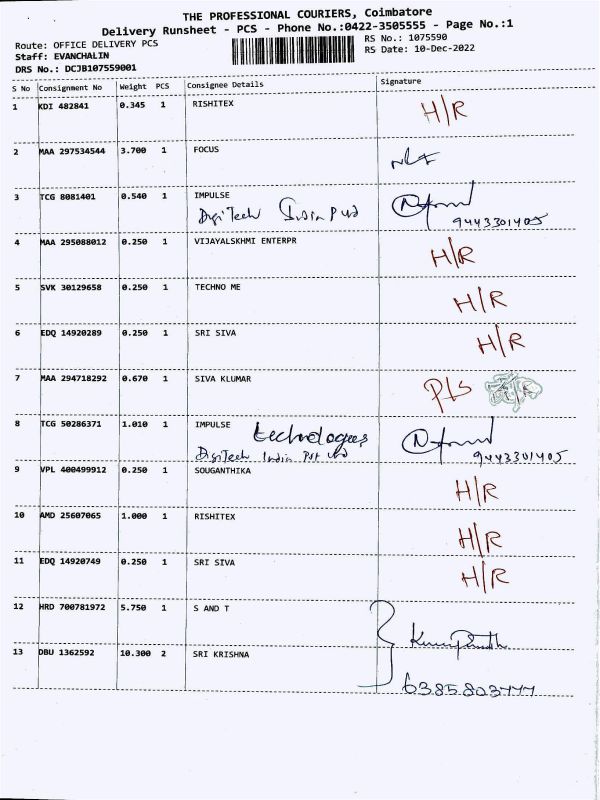 THE PROFESSIONAL COURIERS, Coimbatore
Delivery Runsheet - PCS - Phone No.:0422-3505555 - Page No.:1
Route: OFFICE DELIVERY PCS
RS No.: 1075590
Staff: EVANCHALIN
RS Date: 10-Dec-2022
DRS No.: DCJB107559001
S No Consignment No Weight PCS Consignee Details Signature
1 KDI 482841 0.345 1 RISHITEX H/R
2 MAA 297534544 3.700 1 FOCUS
3 TCG 8081401 0.540 1 IMPULSE
DigiTech India Pvt
9443301405
4 MAA 295088012 0.250 1 VIJAYALSKHMI ENTERPR H/R
5 SVK 30129658 0.250 1 TECHNO ME H/R
6 EDQ 14920289 0.250 1 SRI SIVA H/R
7 MAA 294718292 0.670 1 SIVA KLUMAR P/S
8 TCG 50286371 1.010 1 IMPULSE technologies
DigiTech India Pvt Ltd
9443301405
9 VPL 400499912 0.250 1 SOUGANTHIKA H/R
10 AMD 25607065 1.000 1 RISHITEX H/R
11 EDQ 14920749 0.250 1 SRI SIVA H/R
12 HRD 700781972 5.750 1 S AND T
13 DBU 1362592 10.300 2 SRI KRISHNA
6385803777